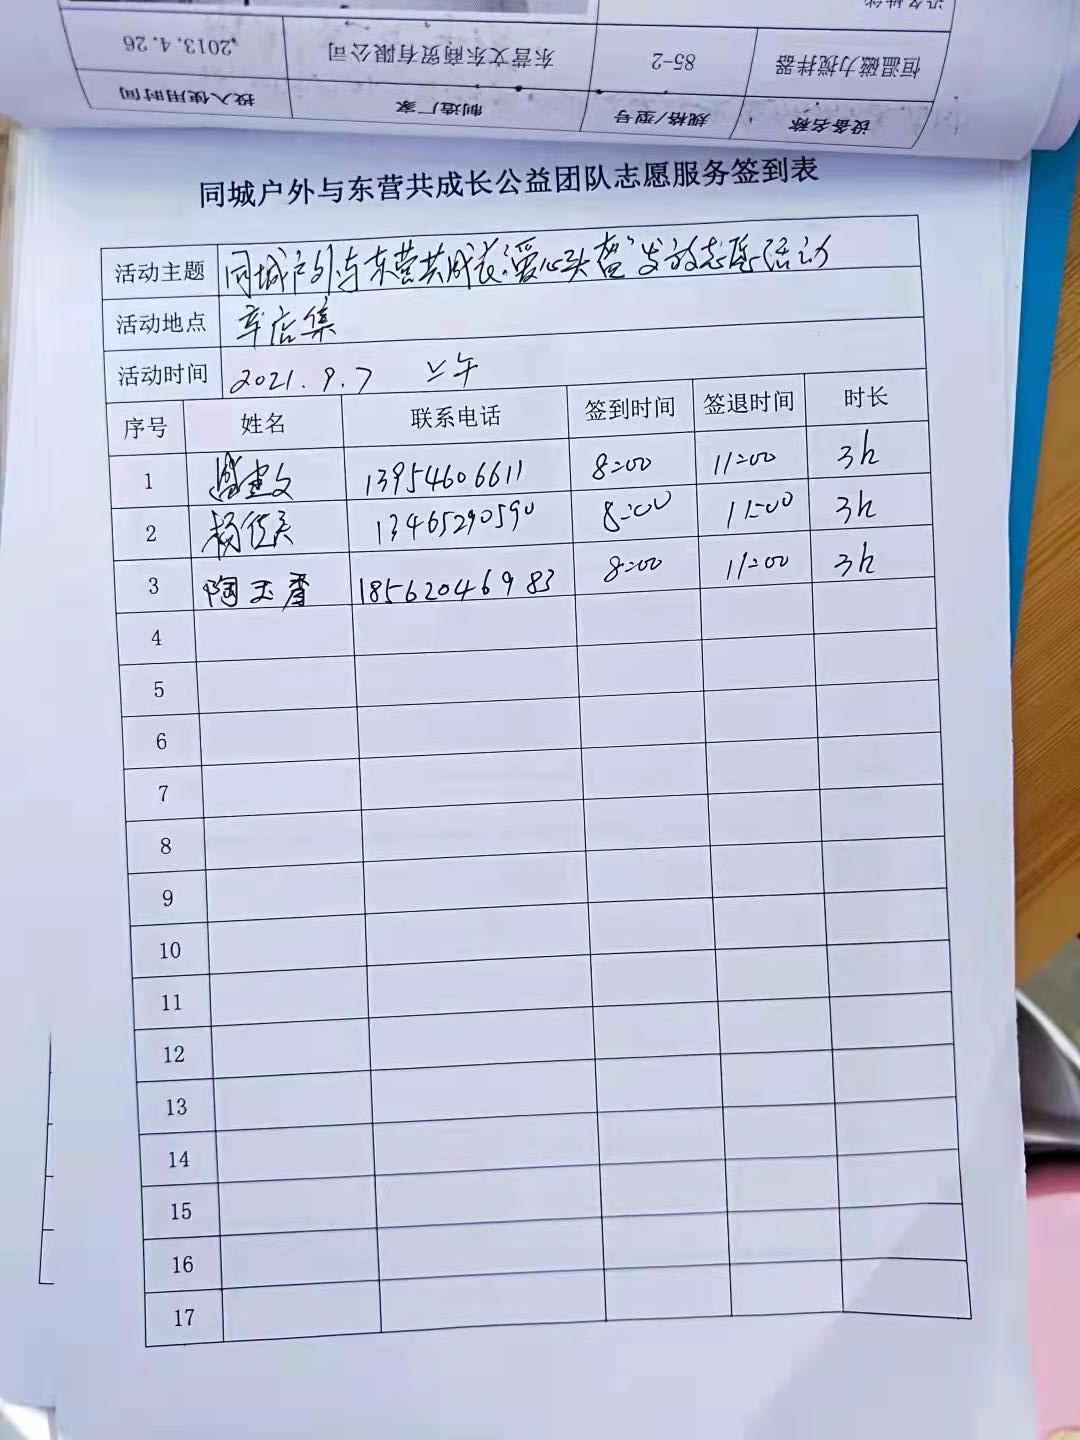 恒温磁力搅拌器 85-2 东营文东商贸有限公司 2013.4.26
设备名称 规格/型号 制造厂家 投入使用时间
同城户外与东营共成长公益团队志愿服务签到表
活动主题 同城户外与东营共成长"爱心头盔"发放志愿活动
活动地点 辛店集
活动时间 2021.9.7 上午
序号 姓名 联系电话 签到时间 签退时间 时长
1 13954606611 8:00 11:00 3h
2 杨 13465290590 8:00 11:00 3h
3 陶玉香 18562046983 8:00 11:00 3h
4
5
6
7
8
9
10
11
12
13
14
15
16
17